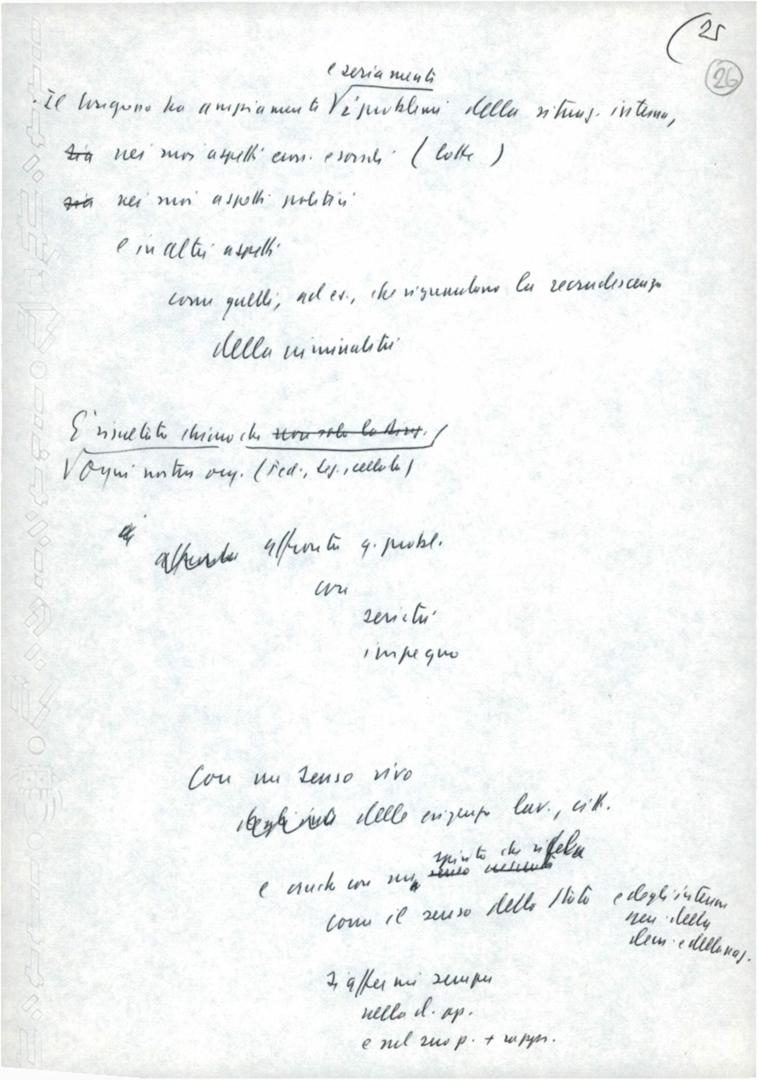 25
26
e seriamente
i problemi della situaz. interna,
sia nei suoi aspetti econ. e sociali (lotte)
sia nei suoi aspetti politici
e in altri aspetti
come quelli, ad es., che riguardano la recrudescenza
della criminalità
E' risultato chiaro che non solo la
Ogni nostra org. (Fed., Sez., cellula)
affronta affronta q. probl.
con
serietà
impegno
Con un senso vivo
delle esigenze lav., citt.
e anche con uno spirito che rivela
come il senso dello Stato e degli interessi
gen. della
dem. e della naz.
si affermi sempre
nella cl. op.
e nel suo p. + rappr.